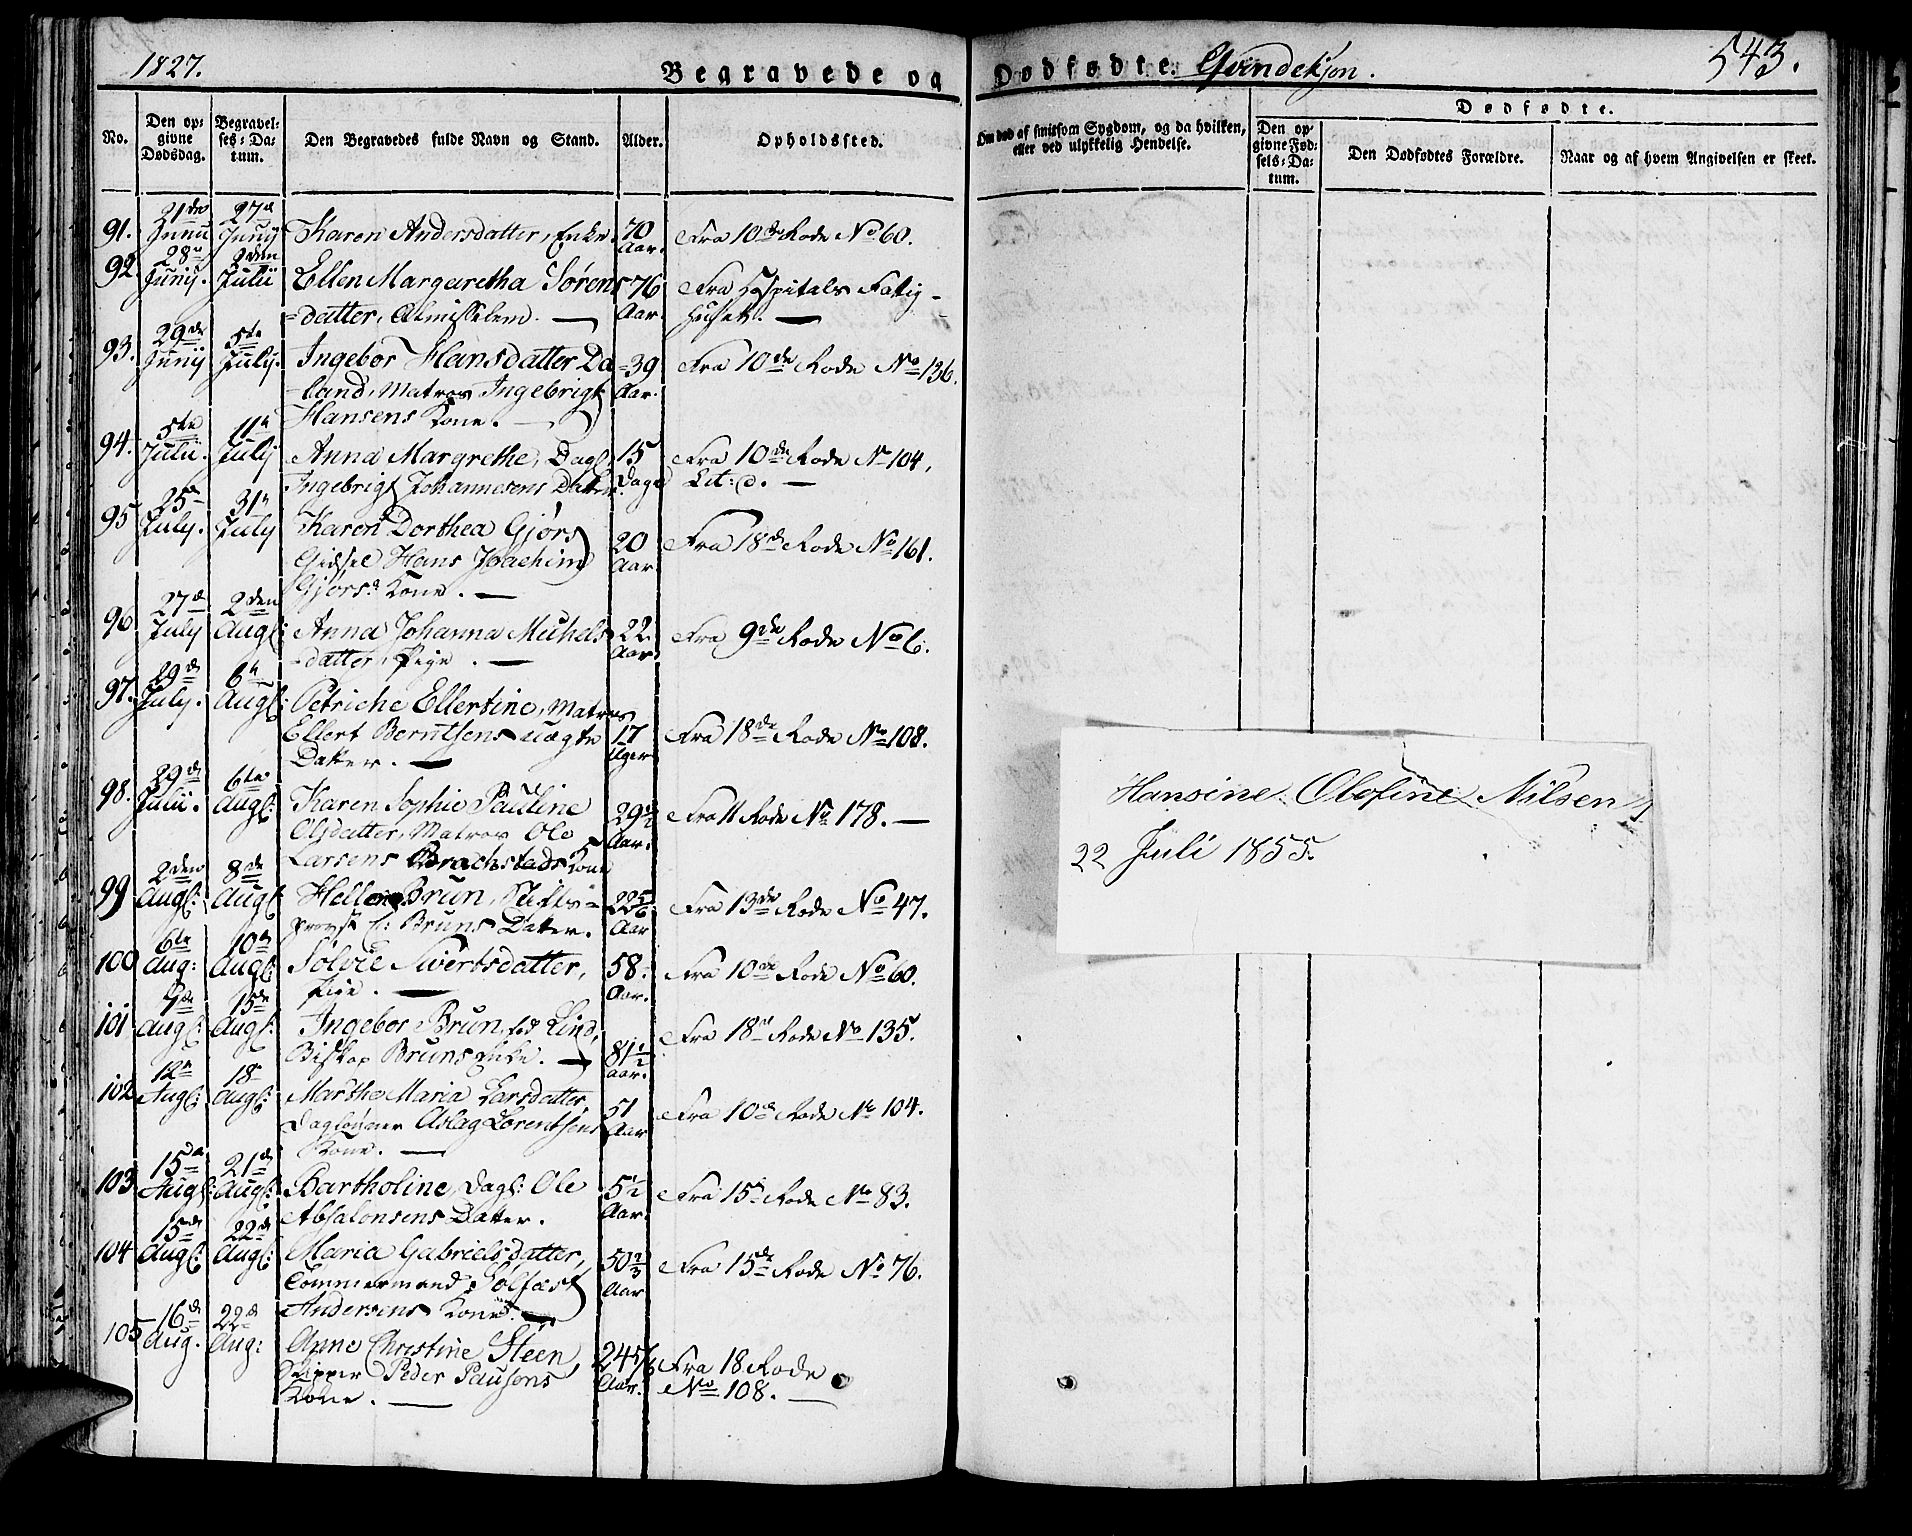 1827.
Begravede og Dødfødte. Qvindekjøn.
543.
No.
Den opgivne Dødsdag.
Begravelses-Datum.
Den Begravedes fulde Navn og Stand.
Alder.
Opholdssted.
Om død af smitsom Sygdom, og da hvilken, eller ved ulykkelig Hendelse.
Dødfødte.
Den opgivne Fødsels-Datum.
Den Dødfødtes Forældre.
Naar og af hvem Angivelsen er skeet.
91. 21de Junii 27de Junij Karen Andersdatter, Enke. 70 Aar. Fra 10de Rode No 60.
92. 28de Junij. 2den Julii Ellen Margaretha Sørens 76 Fra Hospitals Fatig-
=datter, Almisselem. — Aar. huset. —
93. 29de Junij 5te July. Ingebor Hansdatter Da 39 Fra 10de Rode No 136.
=land, Matros Ingebrigt Aar.
Hansens Kone. —
94. 5te Julii. 11te July Anna Margrethe, Dagl. 15 Fra 10de Rode No 104,
Ingebrigt Johannesens Datter. Dage Lit: d. —
95 25de July. 31te July Karen Dorthea Gjørs
Gidsel Hans Joachim 20 Aar Fra 18de Rode No 161.
Gjørs Kone. —
96 27de July 2den Aug: Anna Johanna Michels 22 Fra 9de Rode No 6.
=datter, Pige. — Aar.
97. 29de July. 6te Aug: Petriche Ellertine, Matros
Ellert Berntsens uægte 17 Uger Fra 18de Rode No 108.
Datter. —
98. 29de Julii. 6te Aug: Karen Sophie Pauline
Olsdatter, Matros Ole 29½ Aar. Fra 11 Rode No 178. —
Larsens Brachstads Kone
99 2den Aug: 8de Aug: Hellene Brun, Stifts= 22 5/6 Fra 13de Rode No 47.
provst C: Bruns Datter. Aar
100 6te Aug: 10de Aug: Sølvie Sivertsdatter, 58. Fra 10de Rode No 60.
Pige. — Aar.
101 9de Aug: 15de Aug: Ingebor Brun, fød Lind,
Biskop Bruns Enke. — 81½ Aar. Fra 18de Rode No 135.
102 12te Aug: 18de Aug: Martha Maria Larsdatter,
Dagløner Aslag Lorentsens 51 Aar Fra 10de Rode No 104.
Kone. —
103 15de Aug: 21de Aug: Bartholine, Dagl: Ole 5½ Fra 15de Rode No 83.
Absalonsens Datter. Aar.
104 15de Aug: 22de Aug: Maria Gabrielsdatter, 50 2/3 Fra 15de Rode No 76.
Tømmermand Sølfæst Aar
Andersens Kone. —
105 16de Aug. 22de Aug: Anne Christine Steen, 24 5/6 Fra 18 Rode
Skipper Peder Pausens Aar. No 108. —
Kone. —
Hansine Olofine Nilsen
22 Juli 1855.